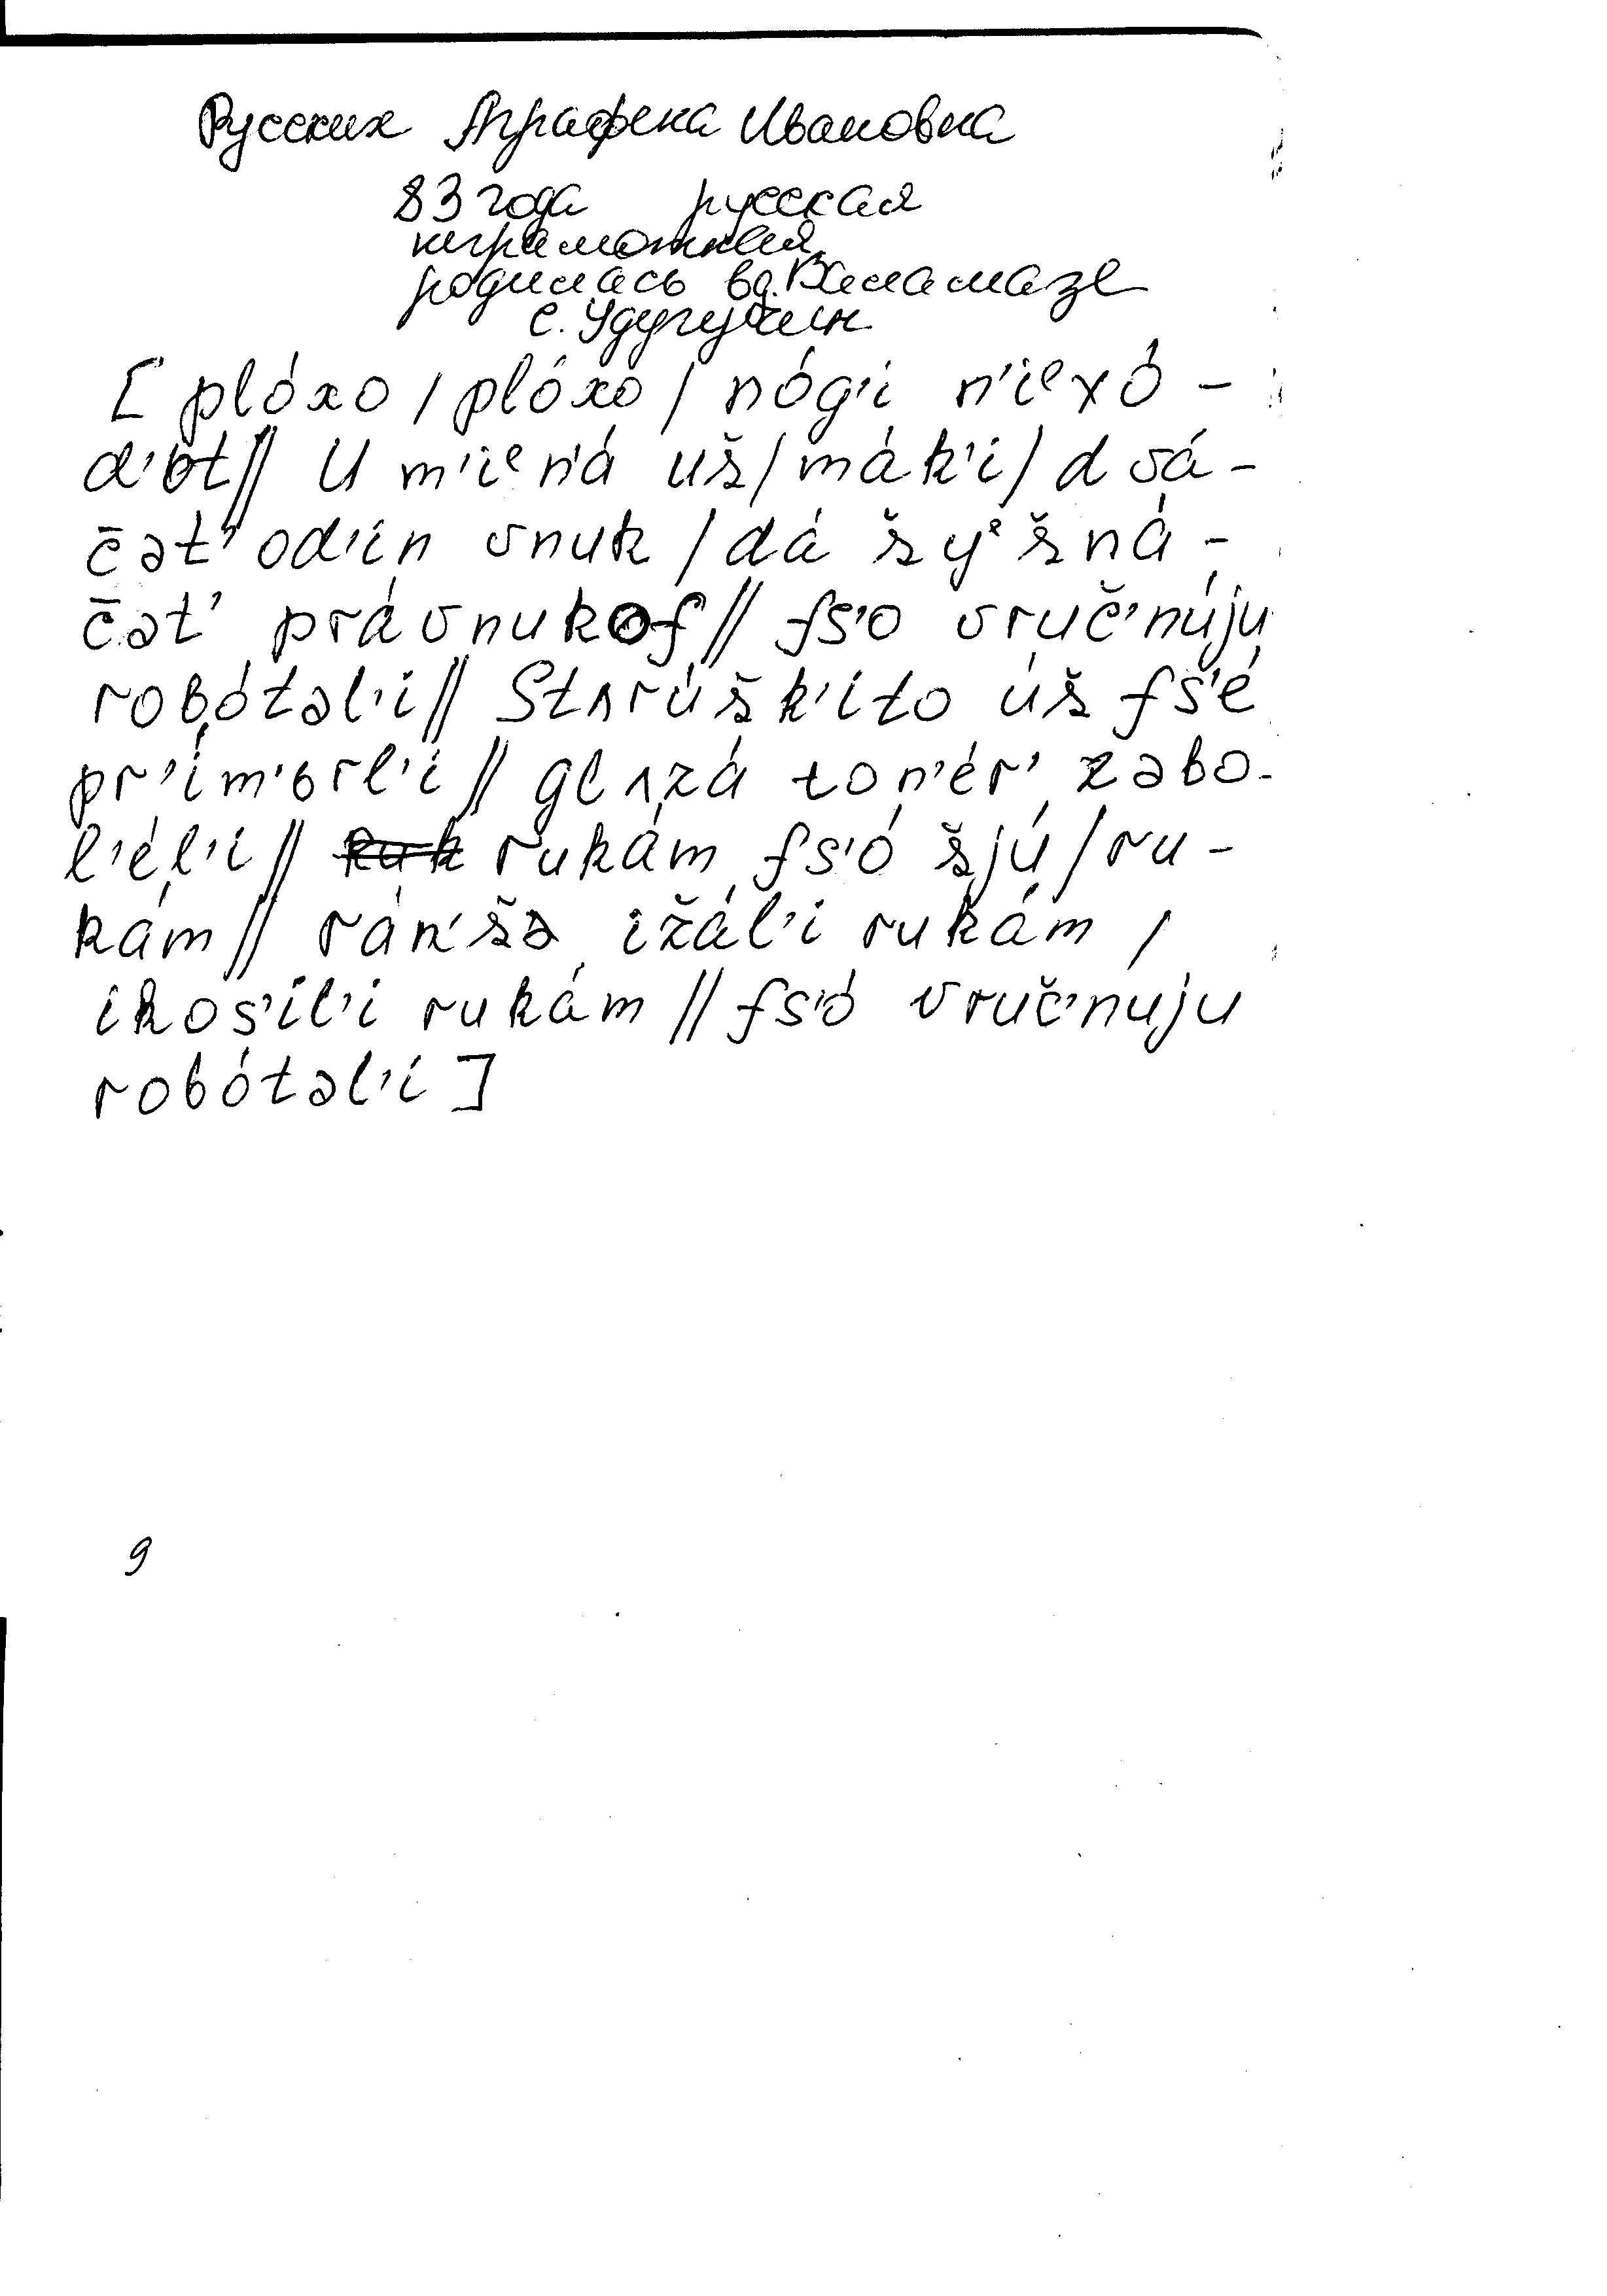 Русских Аграфена Ивановна
83 года русская
неграмотная
родилась в д. Валамазе
с. Удугучин
[ plóxo / plóxo / nóg'i n'iᵉxó –
d'ьt // U m'iᵉn'á uš / mák'i / d vá –
čət' od'ín vnuk / dá šyᵉ šná –
čət' právnukof // fs'o vruč'núju
robótəl'i // Stʌrúšk'ito úš fs'é
pr'ím'ьrl'i // glʌzá ton'ér' zəbo-
l'él'i // rukám fs'ó šjú / ru –
kám // rán'šə ižál'i rukám /
ikos'íl'i rukám // fs'ó vruč'nuju
robótəl'i ]
9